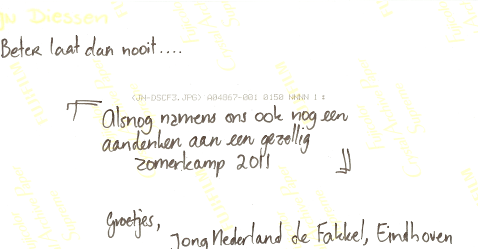 Beter laat dan nooit....
(JN-DSCF3.JPG) A04867-001 0150 NNNN 1 #
Alsnog namens ons ook nog een
aandenken aan een gezellig
zomerkamp 2011
Groetjes,
Jong Nederland de Fakkel, Eindhoven